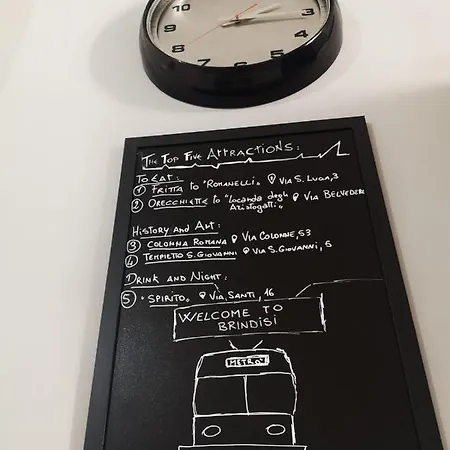 3
10
9
8
7
6
5
4
The Top Five Attractions:
To Eat:
1 Fritta to "Romanelli" Via S. Lucia,3
2 Orecchiette to "Locanda degli Aristogatti" Via Belvedere
History and Art:
3 Colonna Romana Via Colonne, 53
4 Tempietto S. Giovanni Via S. Giovanni, 6
Drink and Night:
5 "Spirito" Via Santi, 16
WELCOME TO
BRINDISI
METRO